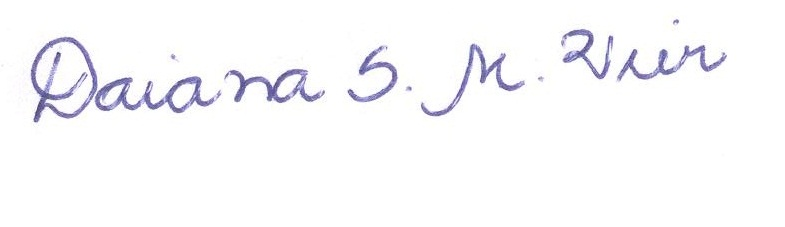 Daiana S. M. Vier